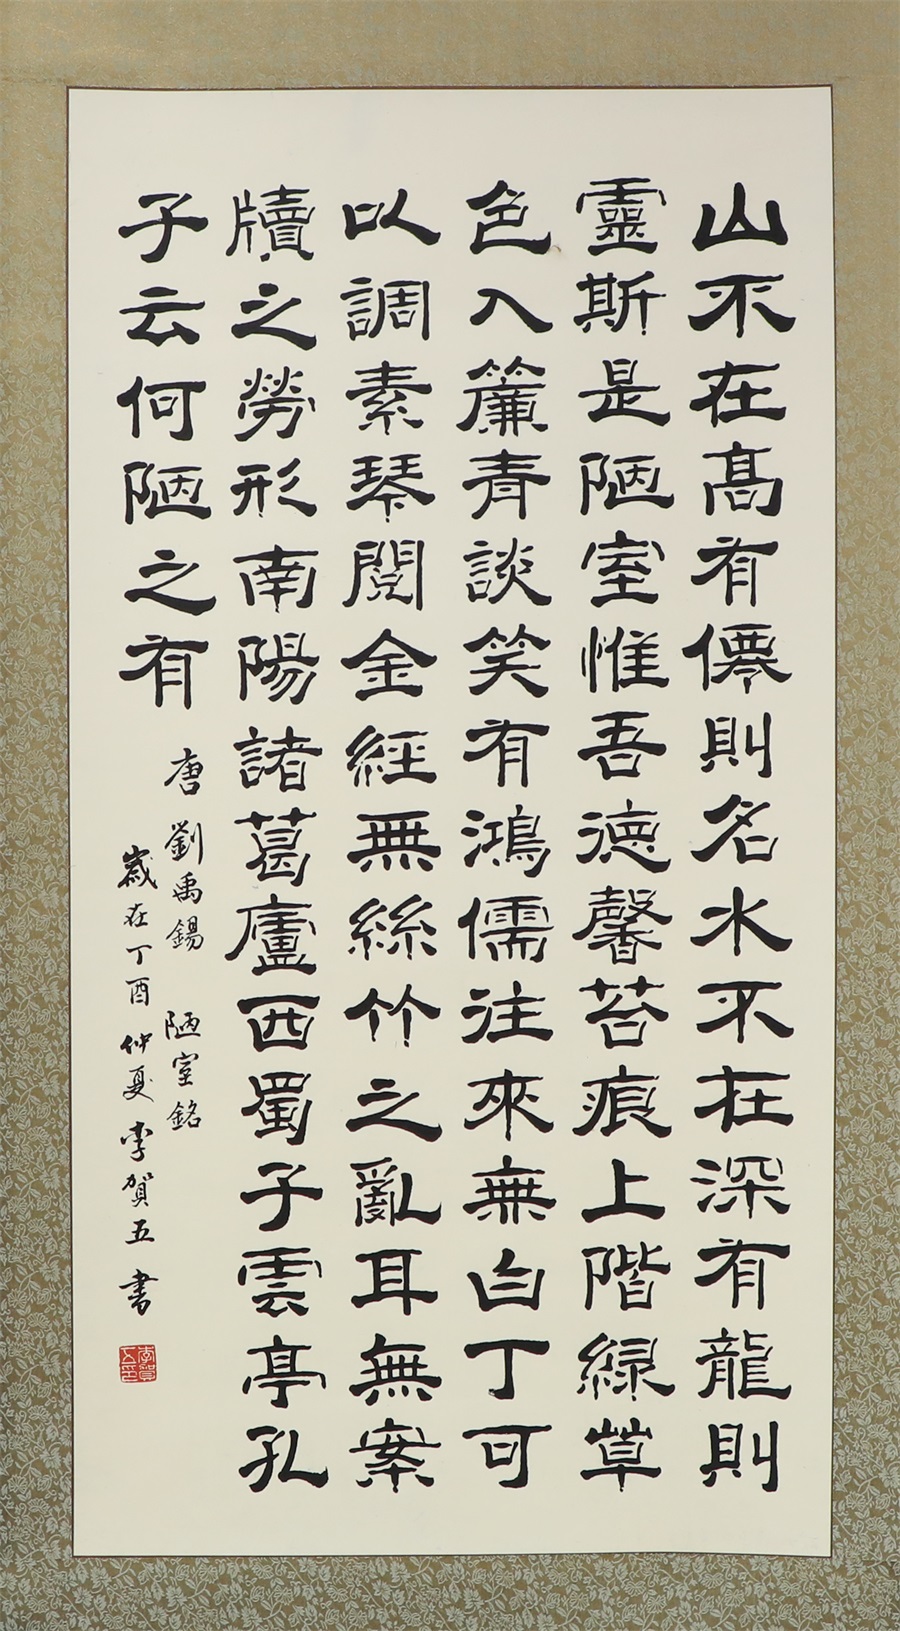 山不在高有僊則名水不在深有龍則
靈斯是陋室惟吾德馨苔痕上階緑草
色入簾青談笑有鴻儒往來無白丁可
以調素琴閱金經無絲竹之亂耳無案
牘之勞形南陽諸葛廬西蜀子雲亭孔
子云何陋之有
唐劉禹錫 陋室銘
歲在丁酉仲夏李賀五書
李賀五印